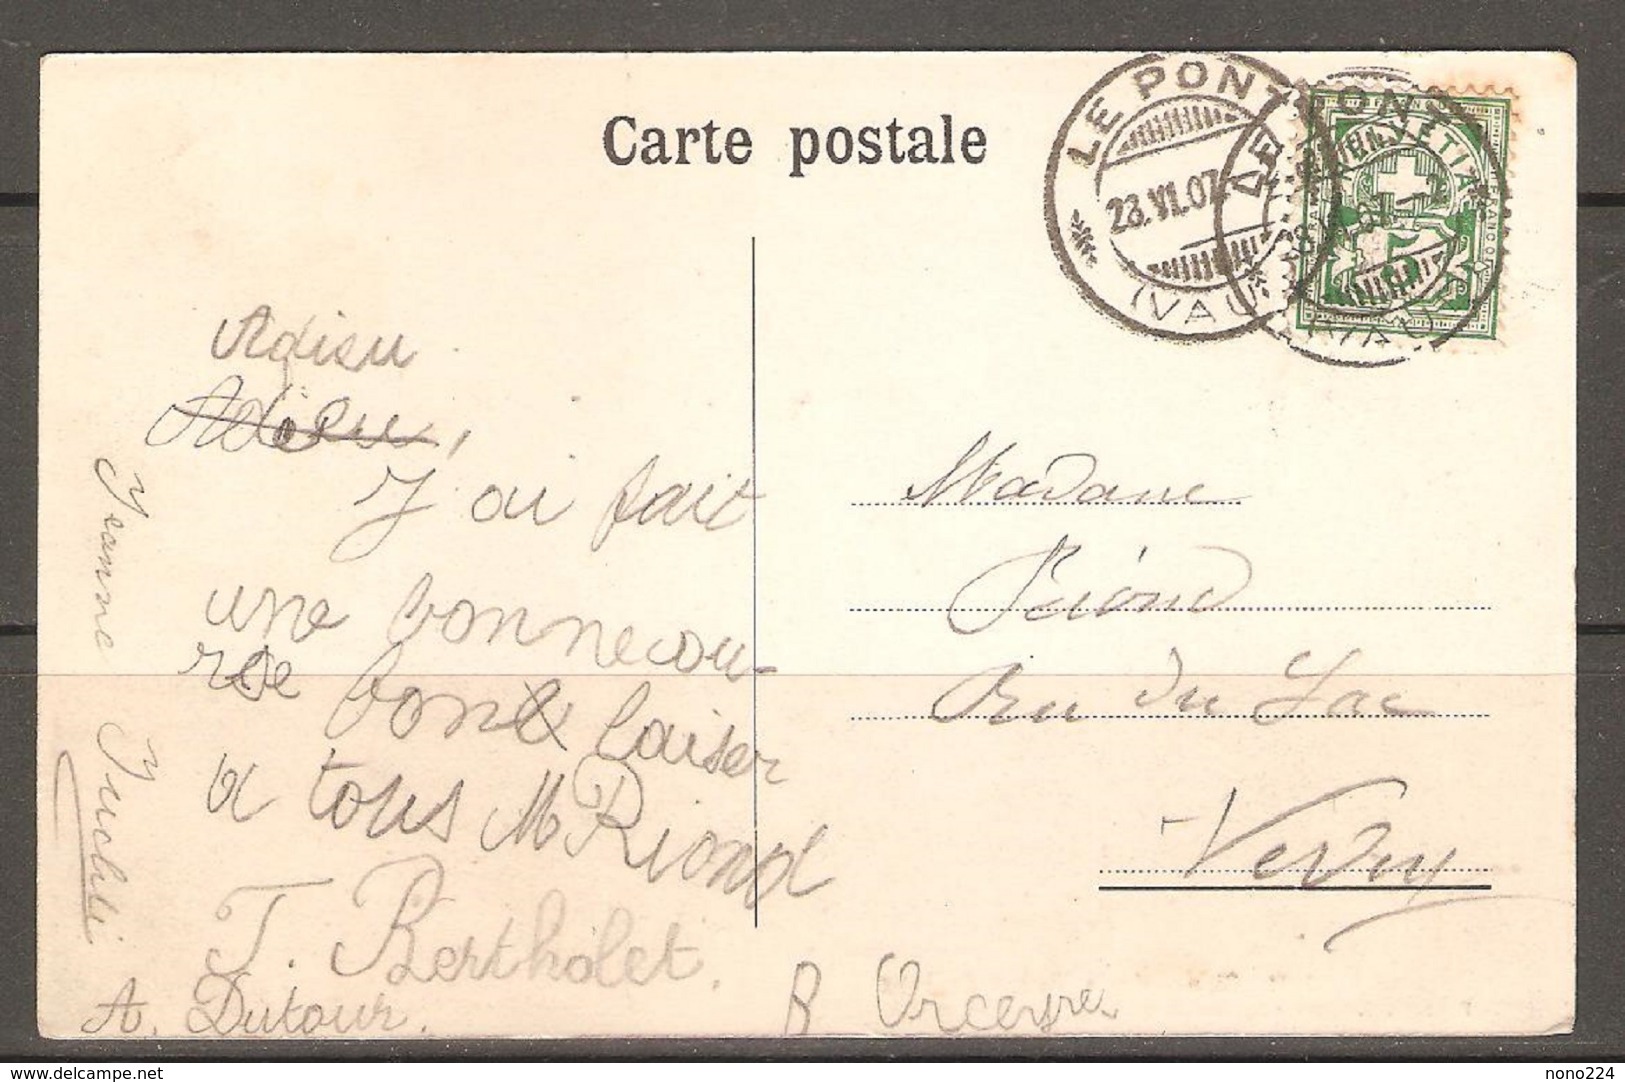 Carte postale
LE PONT
28.VI.07
(VAUD)
HELVETIA
FRANCO
Adieu
Adieu,
J ai fait
une bonne cou-
rse bon laiser
a tous M Riond
T. Berthólet.
A. Dutour.
Jeanne
Madame
Riond
Ru du Lac
Vevey
www.delcampe.net
nono224